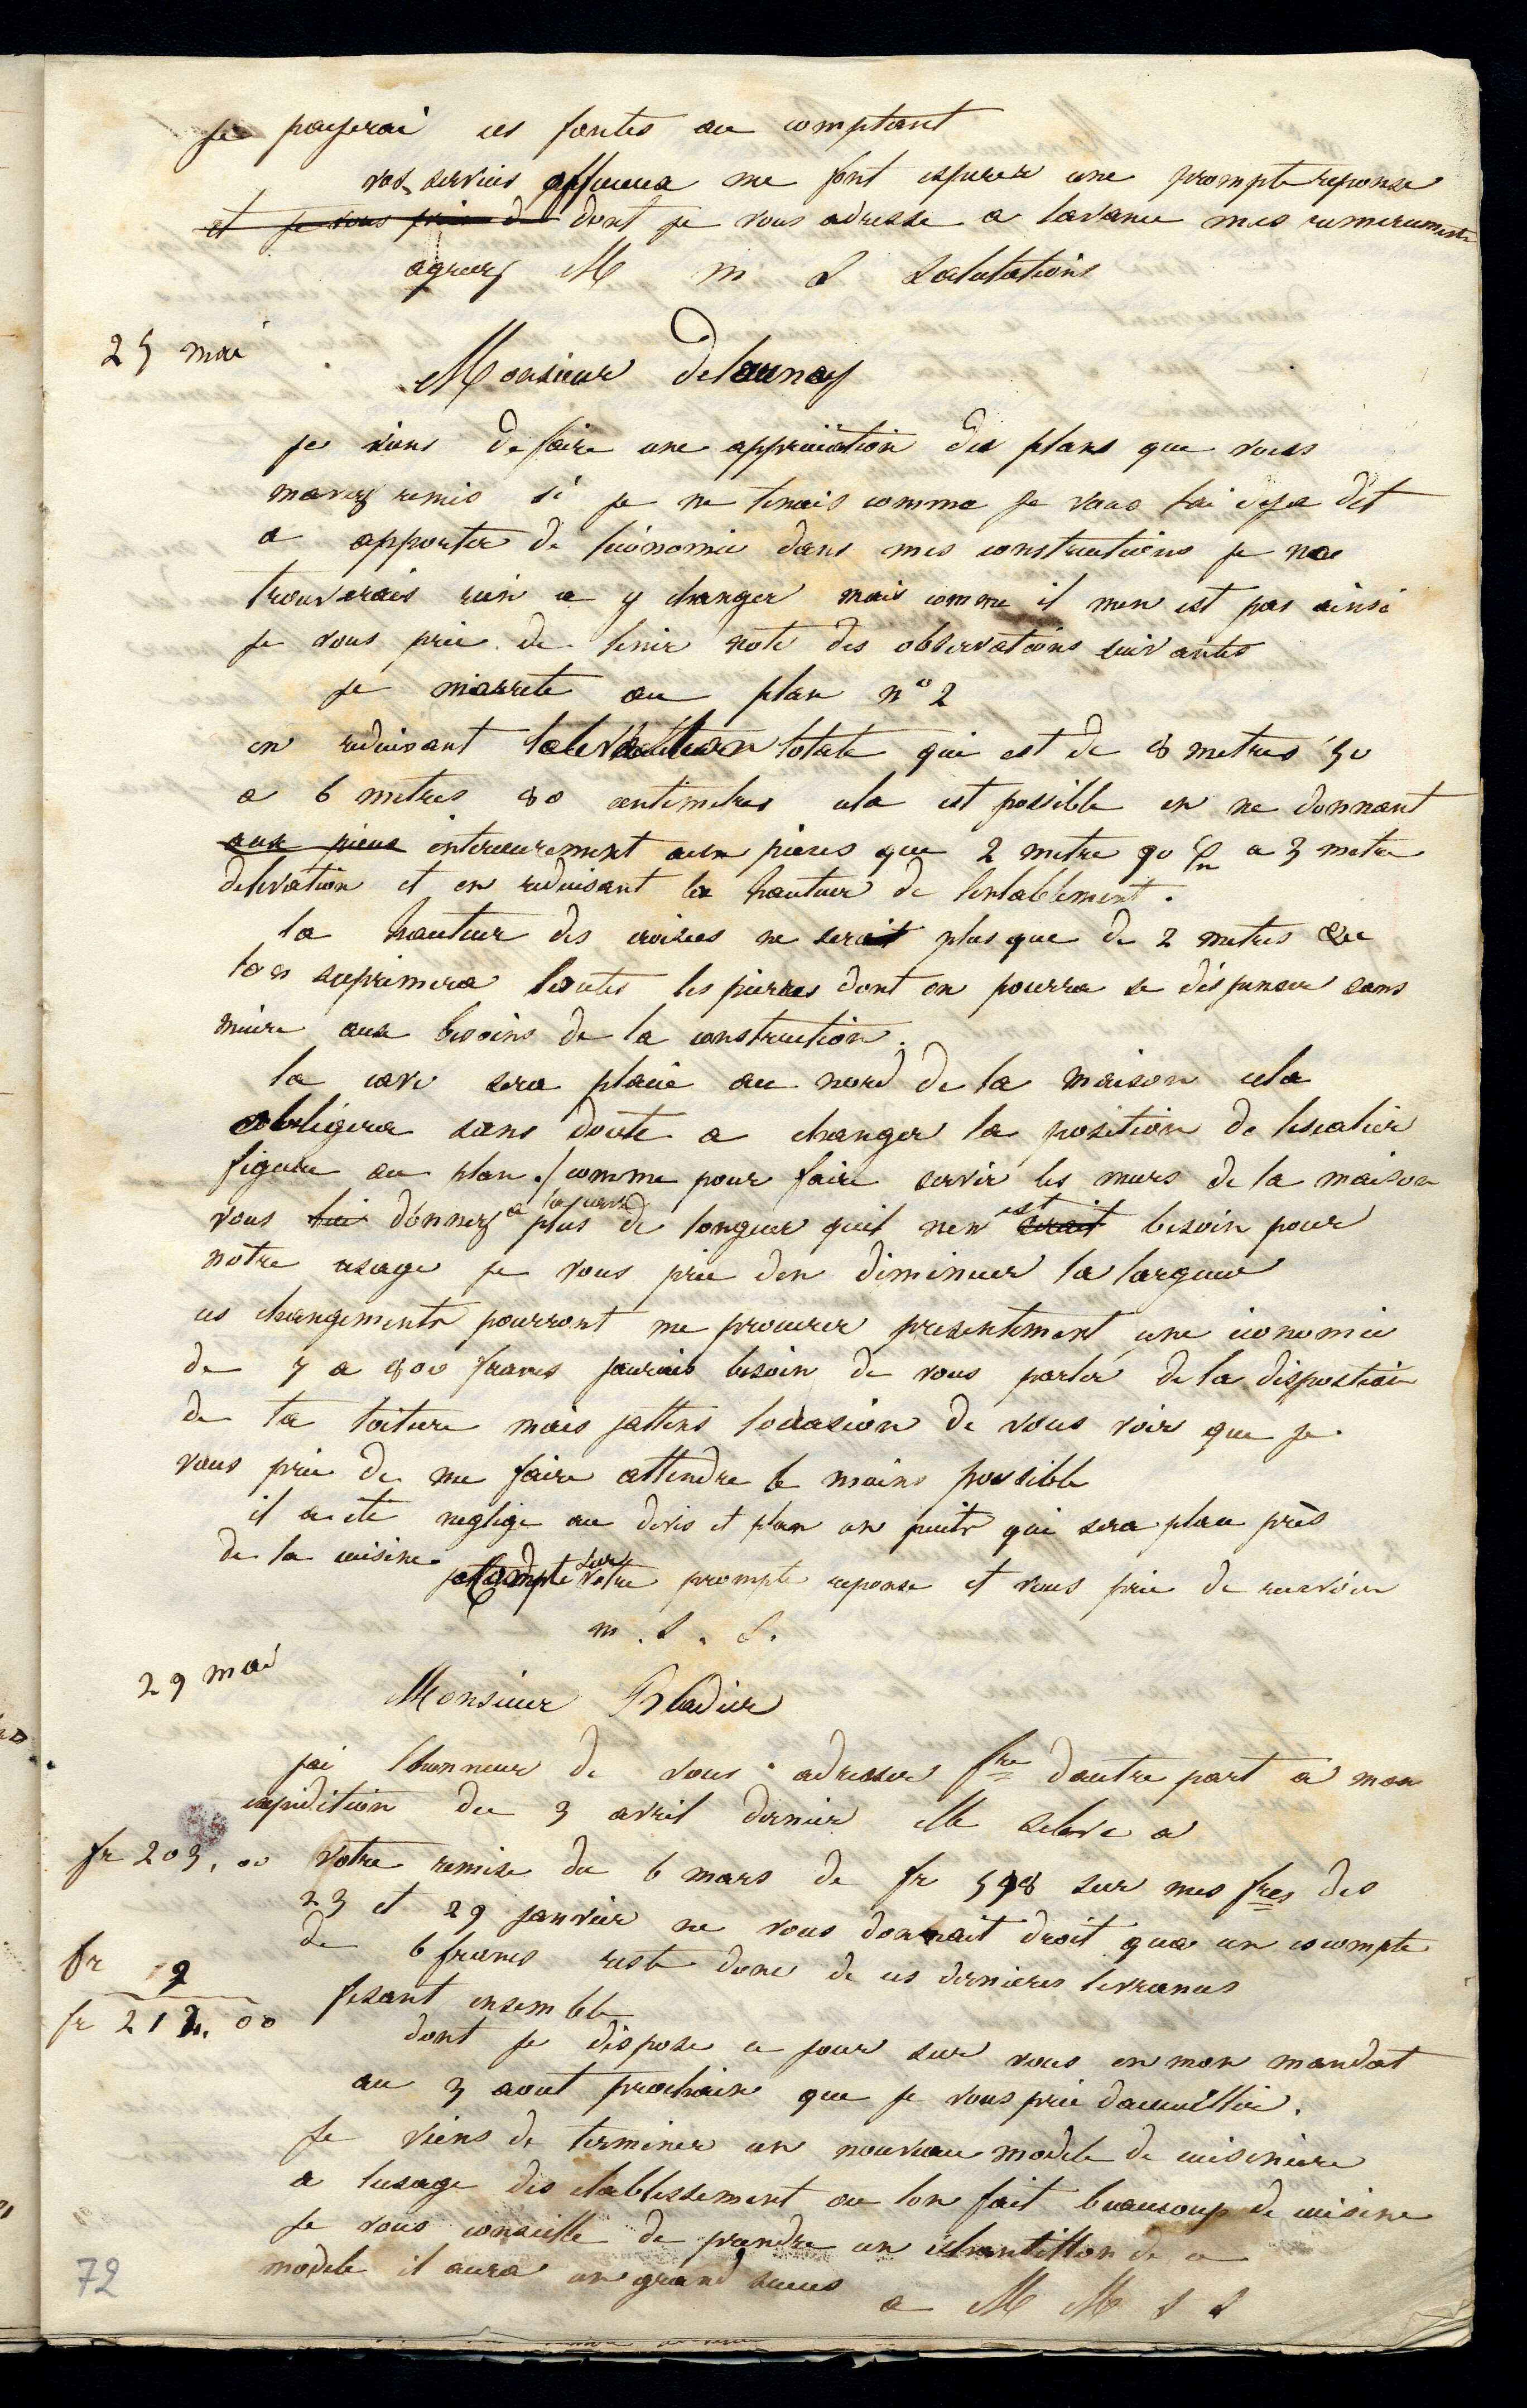 je payerai ces fontes au comptant
vos services affectueux me font esperer une prompte reponse
et je vous prie de dont je vous adresse a lavance mes remerciments
agreez M m S Salutations
25 mai
Monsieur Delaunay
je viens de faire une appreciation des plans que vous
mavez remis si je ne tenais comme je vous lai deja dit
a apporter de leconomie dans mes constructions je ne
trouverais rien a y changer mais comme il nen est pas ainsi
je vous prie de tenir note des observations suivantes
je marrete au plan n° 2
en reduisant lelevation totale qui est de 8 metres 50
a 6 metres 80 centimetres cela est possible en ne donnant
aux pieces interieurement aux pieces que 2 metre 90 a 3 metre
delevation et en reduisant la hauteur de lentablement.
la hauteur des croisees ne serait plus que de 2 metres
lon suprimera toutes les pierres dont on pourra se dispenser sans
nuire aux besoins de la construction.
la cave sera placée au nord de la maison cela
obligera sans doute a changer la position de lescalier
figure au plan. / comme pour faire servir les murs de la maison
vous lui donnez a la cave plus de longeur quil nen serait est besoin pour
notre usage je vous prie den diminuer la largeur
ces changements pourront me procurer presentement une economie
de 7 a 800 francs jaurais besoin de vous parler de la dispostion
de la toiture mais jattens loccasion de vous voir que je
vous prie de me faire attendre le moins possible
il a ete neglige au devis et plan un puits qui sera place près
de la cuisine
je compte sur votre prompte reponse et vous prie de recevoir
m. S. S.
29 mai
Monsieur Bladier
jai lhonneur de vous adresser fre dautre part a mon
expedition du 3 avril dernier elle seleve a
fr 203,00 Votre remise du 6 mars de fr 598 sur mes fres des
23 et 29 janvier ne vous donnait droit qua un escompte
de 6 francs reste donc de ces dernieres livrances
fr 9
fr 212.00 fesant ensemble
dont je dispose ce jour sur vous en mon mandat
au 3 aout prochain que je vous prie daccueillir.
Je viens de terminer un nouveau modele de cuisiniere
a lusage des etablissement ou lon fait beaucoup de cuisine
Je vous conseille de prendre un echantillon de ce
modele il aura un grand succes
a M M S S
72